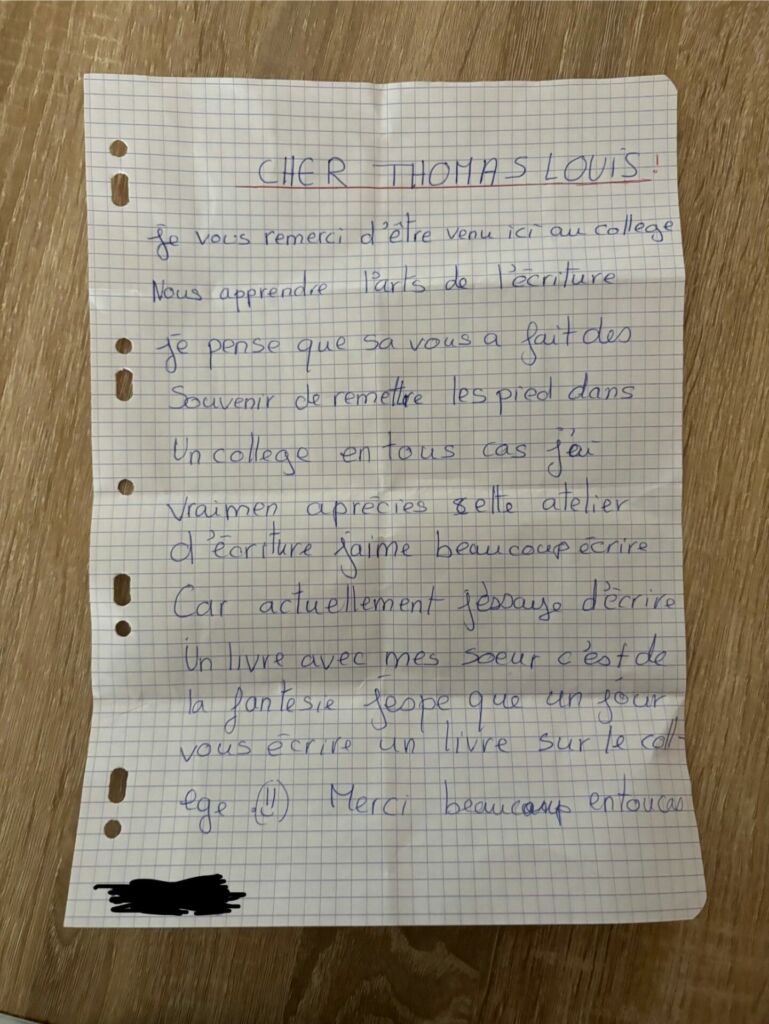 CHER THOMAS LOUIS !
Je vous remerci d'être venu ici au college
Nous apprendre l'arts de l'écriture
Je pense que sa vous a fait des
Souvenir de remettre les pied dans
Un college en tous cas j'ai
vraimen aprécies selte atelier
d'écriture j'aime beaucoup écrire
Car actuellement j'éssaye d'écrire
Un livre avec mes soeur c'est de
la fantesie j'espe que un jour
vous écrire un livre sur le coll-
ege Merci beaucoup entoucas